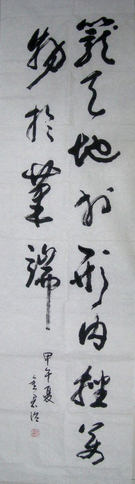 籠天地於形内挫萬
物於筆端
甲午夏